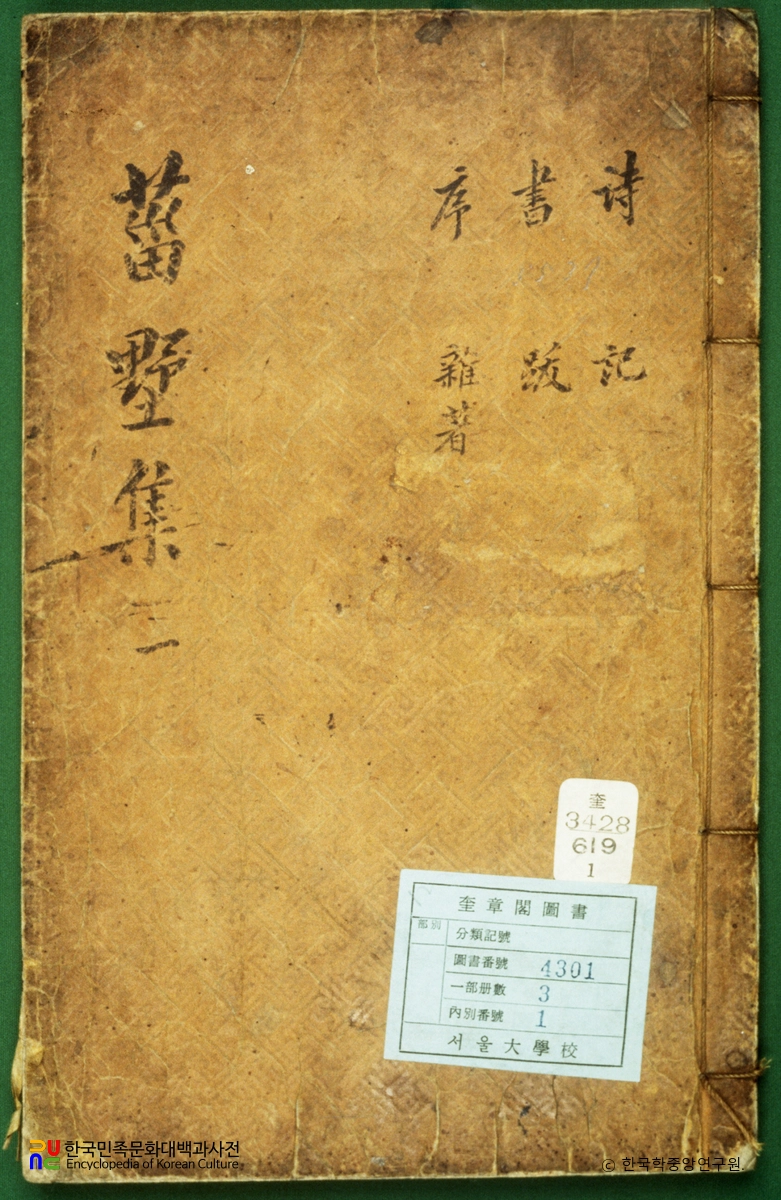 詩 記
書 跋
序 雜著
菑墅集
奎
3428
619
1
奎章閣圖書
部別
分類記號
圖書番號 4301
一部册數 3
內別番號 1
서울大學校
한국민족문화대백과사전
Encyclopedia of Korean Culture
© 한국학중앙연구원.